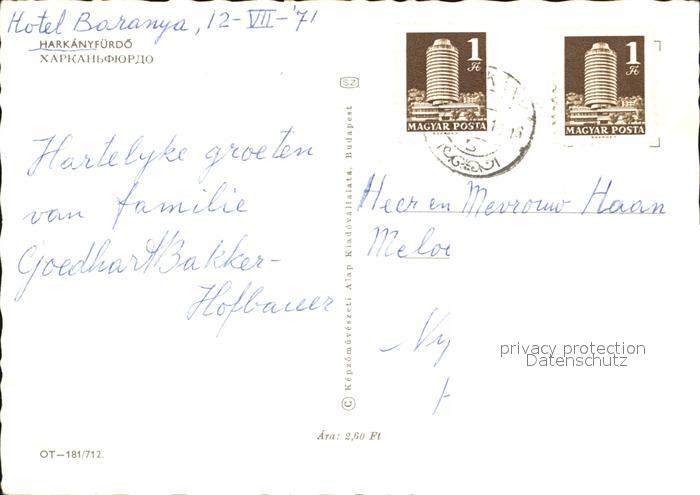 Hotel Baranya, 12-VII-'71
HARKÁNYFÜRDŐ
ХАРКАНЬФЮРДО
Hartelyke groeten
van familie
Goedhart/Bakker-
Hofbauer
SZ
© Képzőművészeti Alap Kiadóvállalata, Budapest
Ára: 2,60 Ft
OT—181/712.
1 Ft
MAGYAR POSTA
1 Ft
MAGYAR POSTA
Heer en Mevrouw Haan
privacy protection
Datenschutz